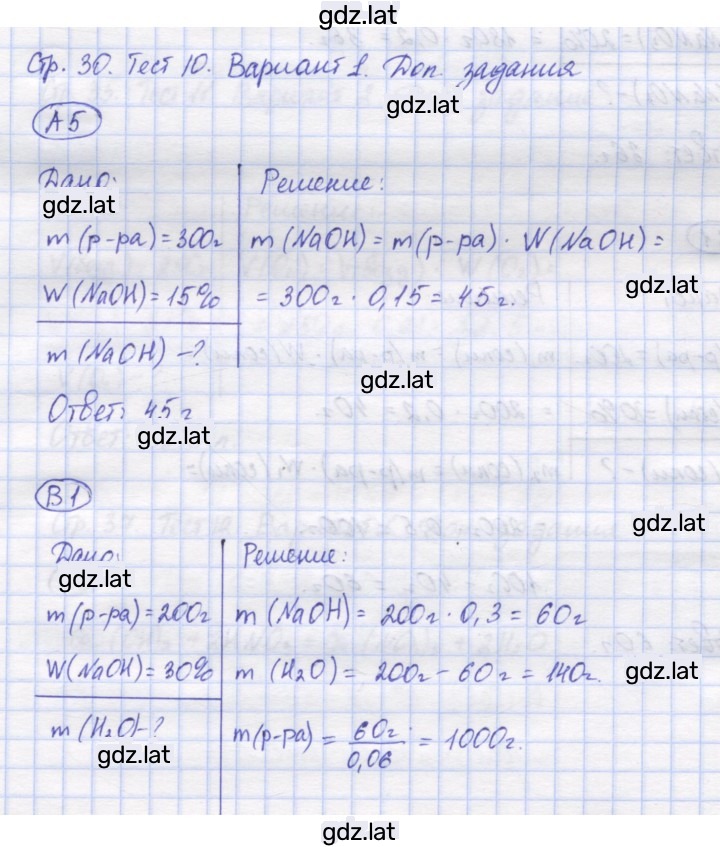 gdz.lat
Стр. 30. Тест 10. Вариант 1. Доп. задания
gdz.lat
А5
Дано:
gdz.lat
m (р-ра) = 300г
W (NaOH) = 15%
m (NaOH) -?
Решение:
m (NaOH) = m(р-ра) · W(NaOH) =
gdz.lat
= 300г · 0,15 = 45г.
gdz.lat
Ответ: 45 г
gdz.lat
В1
gdz.lat
Дано:
gdz.lat
m(р-ра) = 200г
W(NaOH) = 30%
m (H₂O)-?
gdz.lat
Решение:
m (NaOH) = 200г · 0,3 = 60г
m (H₂O) = 200г - 60г = 140г.
gdz.lat
m(р-ра) = 60г / 0,06 = 1000г.
gdz.lat